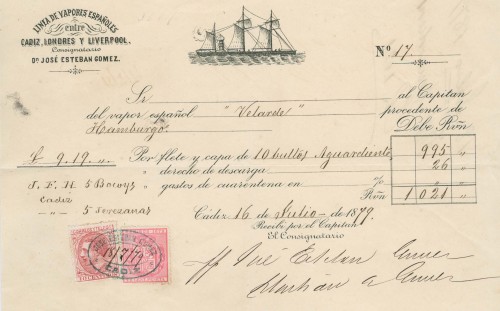 LINEA DE VAPORES ESPAÑOLES
entre
CADIZ, LONDRES Y LIVERPOOL.
Consignatario
Dn. JOSÉ ESTEBAN GOMEZ.
No. 17.
Sr. al Capitan
del vapor español "Velarde" procedente de
Hamburgo. Debe Rvñ
£ 9.19.„. Por flete y capa de 10 bultos Aguardiente 995 „
„ derecho de descarga 26 „
J. F. H. 5 „ gastos de cuarentena en Rvñ 1.021 „
Cadiz
„ 5 Jerezanas
Cádiz 16 de Julio de 1879.
Recibí por el Capitan
El Consignatario
José Esteban Gomez
CADIZ